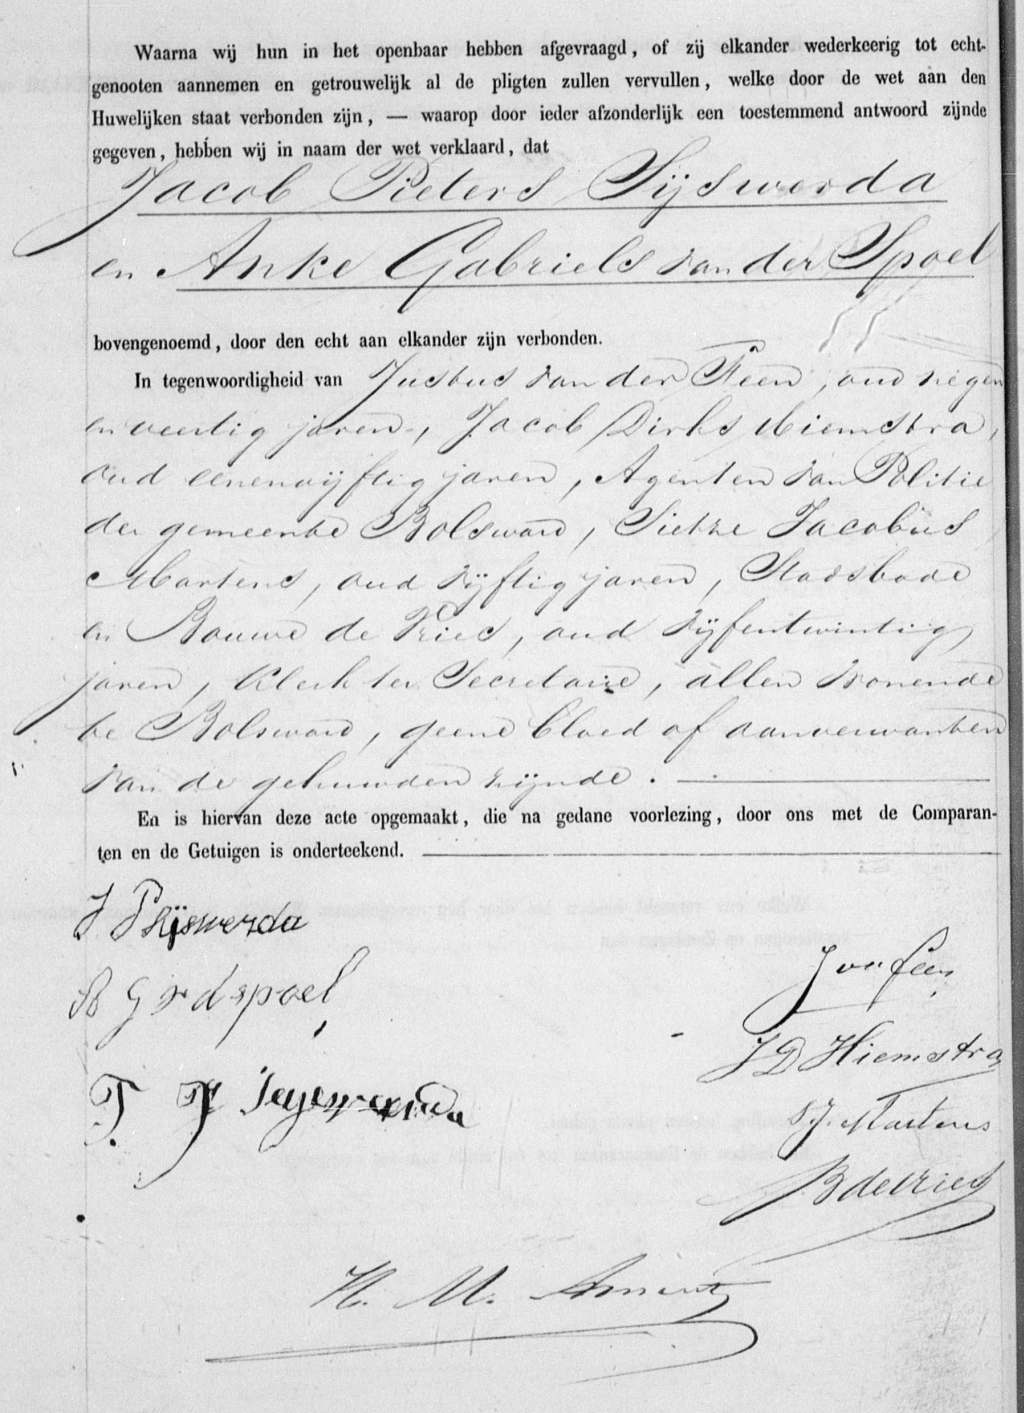 Waarna wij hun in het openbaar hebben afgevraagd, of zij elkander wederkeerig tot echt-
genooten aannemen en getrouwelijk al de pligten zullen vervullen, welke door de wet aan den
Huwelijken staat verbonden zijn, — waarop door ieder afzonderlijk een toestemmend antwoord zijnde
gegeven, hebben wij in naam der wet verklaard, dat
Jacob Pieters Sijswerda
en Anke Gabriels van der Spoel
bovengenoemd, door den echt aan elkander zijn verbonden.
In tegenwoordigheid van Justus van der Feen, oud negen
en veertig jaren, Jacob Dirks Hiemstra,
oud eenenvijftig jaren, Agenten van Politie
der gemeente Bolsward, Sietze Jacobus
Martens, oud vijftig jaren, Stadsbode
en Bouwe de Vries, oud vijfentwintig
jaren, Klerk ter Secretarie, allen wonende
te Bolsward, geene bloed of aanverwanten
van de gehuwden zijnde.
En is hiervan deze acte opgemaakt, die na gedane voorlezing, door ons met de Comparan-
ten en de Getuigen is onderteekend.
J P Sijswerda
A G vd spoel
J vd feen
J D Hiemstra
P. J Seyswerda
S J. Martens
B de Vries
H. M.